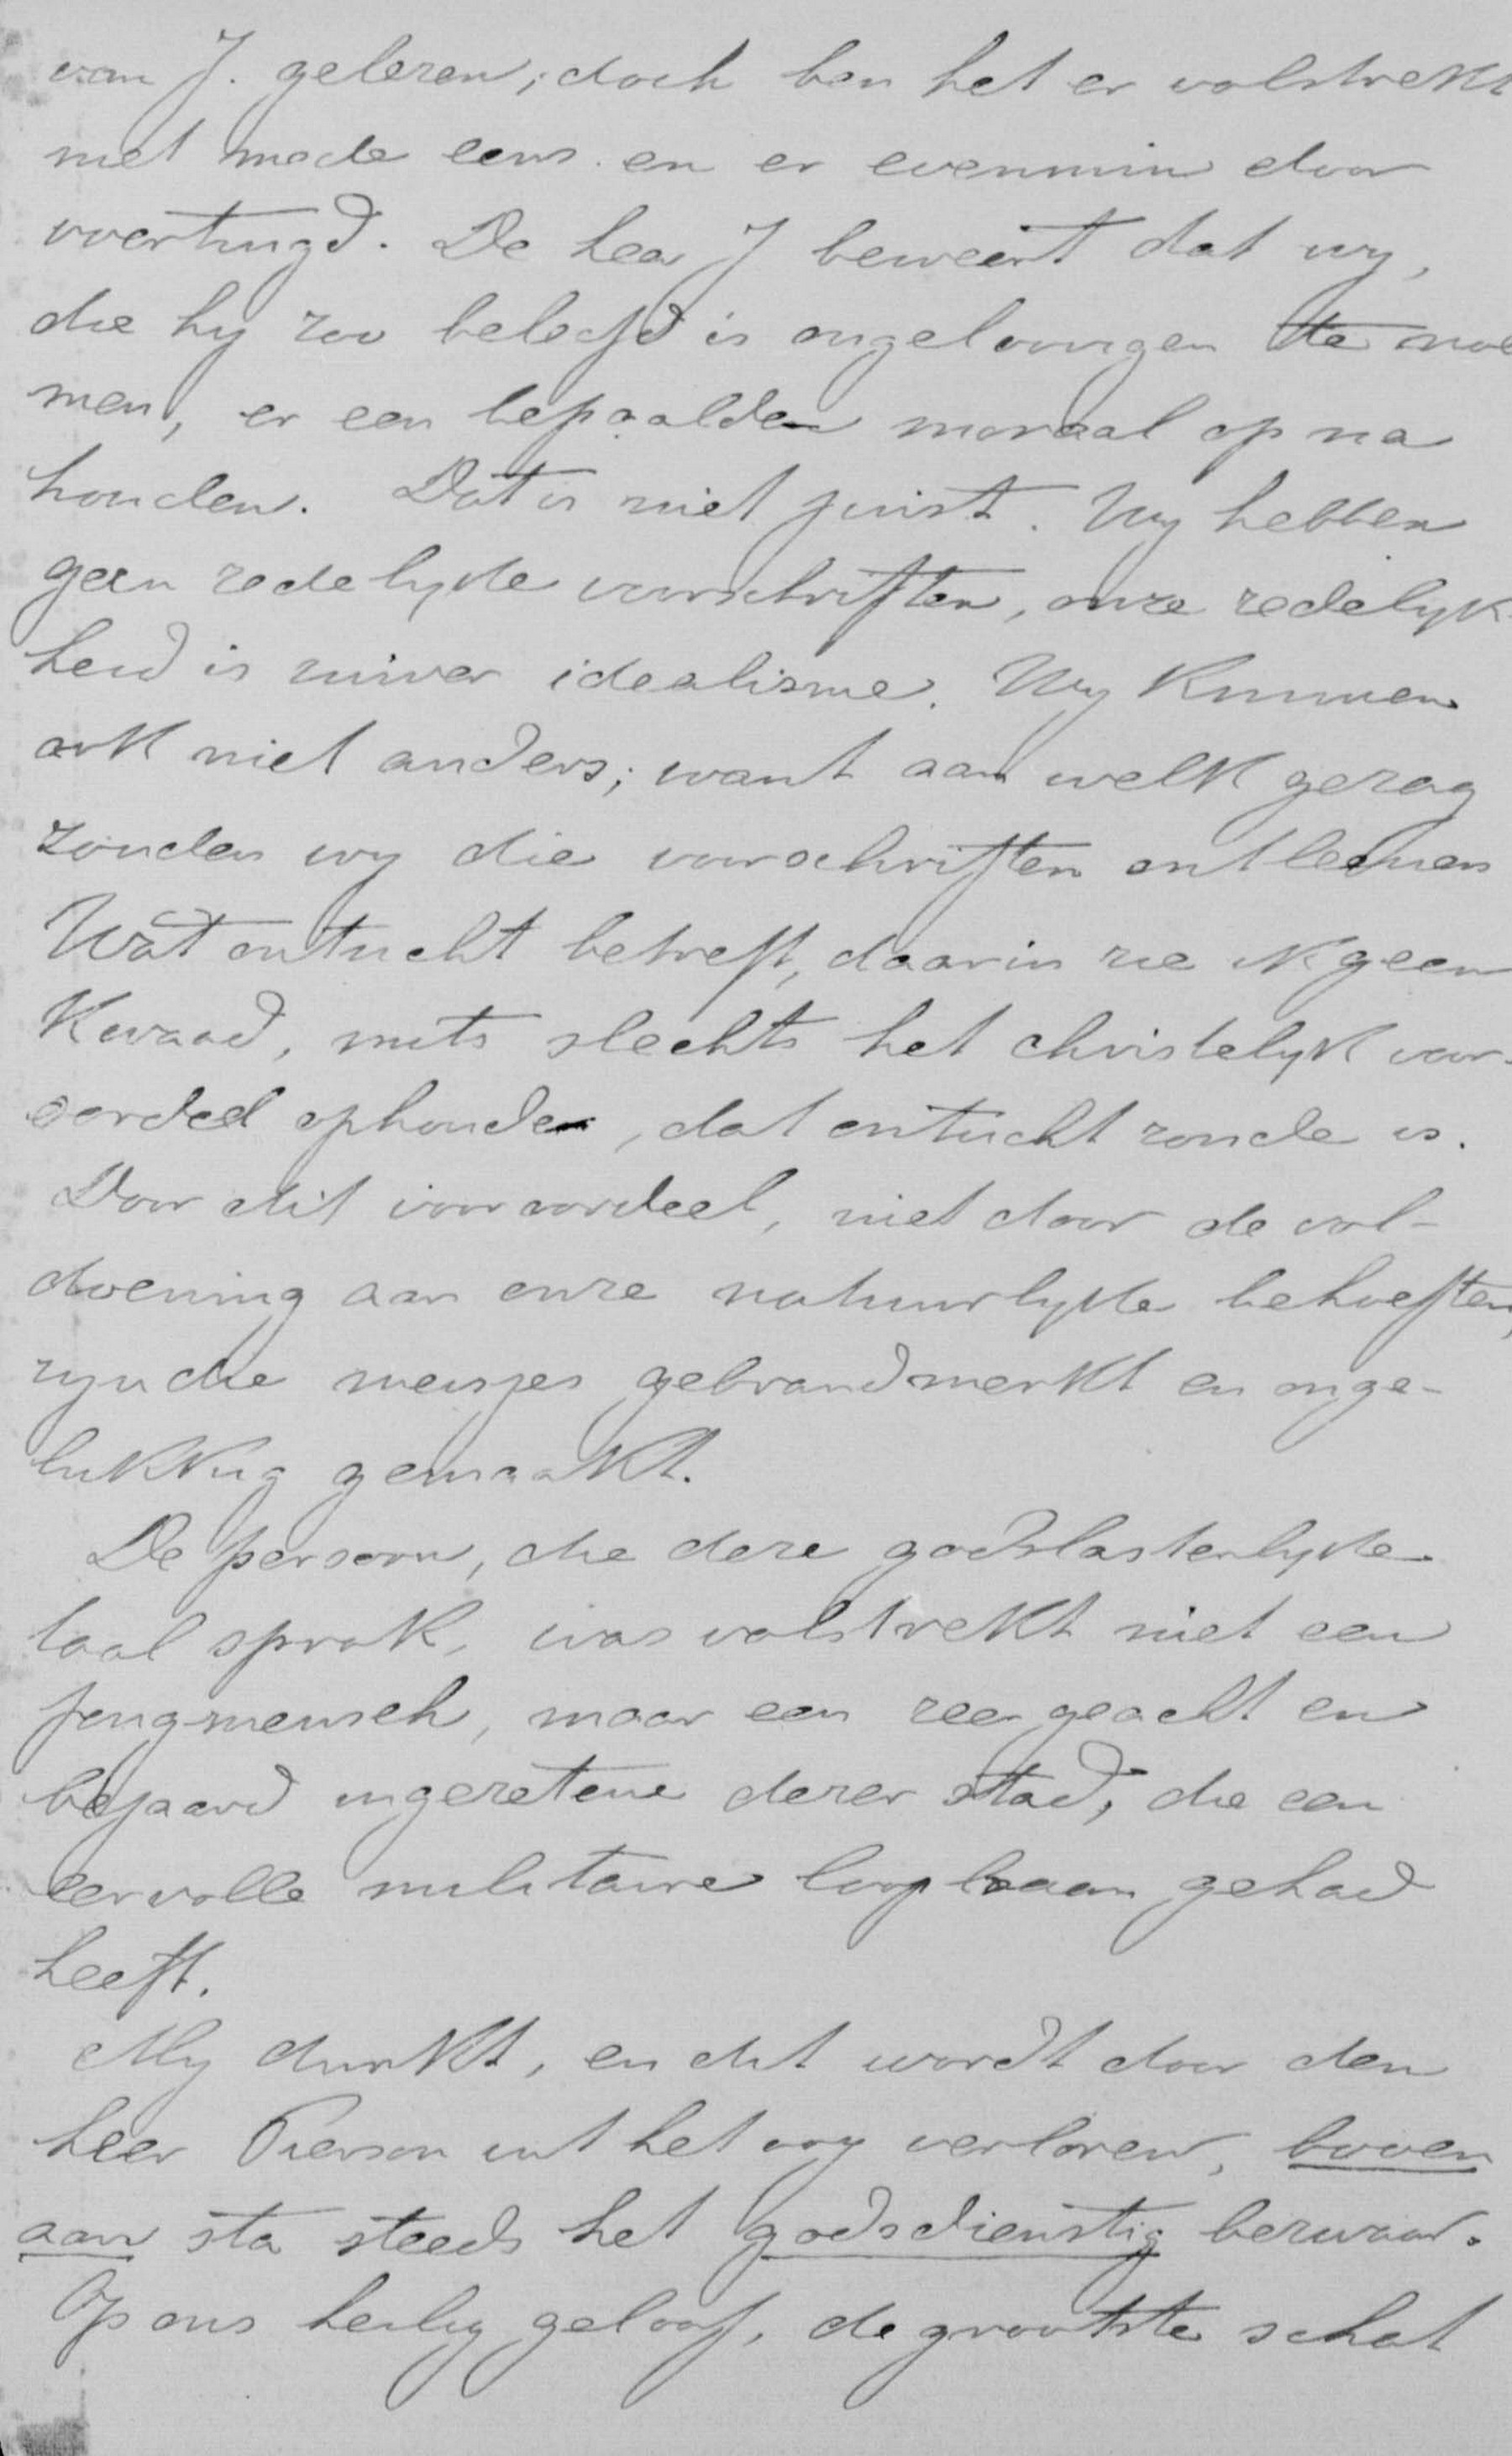 van J. gelezen; doch ben het er volstrekt
niet mede eens en er evenmin door
overtuigd. De heer J beweert dat wy,
die hy zoo beleefd is ongeloovigen te noe
men, er een bepaalde moraal op na
houden. Dat is niet juist. Wy hebben
geen zedelyke voorschriften, onze zedelyk-
heid is zuiver idealisme. Wy kunnen
ook niet anders; want aan welk gezag
zouden wy die voorschriften ontleenen
Wat ontucht betreft, daarin zie ik geen
kwaad, mits slechts het christelyk voor-
oordeel ophoude, dat ontucht zonde is.
Door dit vooroordeel, niet door de vol-
doening aan onze natuurlyke behoeften,
zyn die meisjes gebrandmerkt en onge-
lukkig gemaakt.
De persoon, die deze godslasterlyke
taal sprak, was volstrekt niet een
jongmensch, maar een zeer geacht en
bejaard ingezetene dezer stad, die een
eervolle militaire loopbaan gehad
heeft.
My dunkt, en dit wordt door den
heer Pierson uit het oog verloren, boven
aan sta steeds het godsdienstig bezwaar.
Op ons heilig geloof, de grootste schat